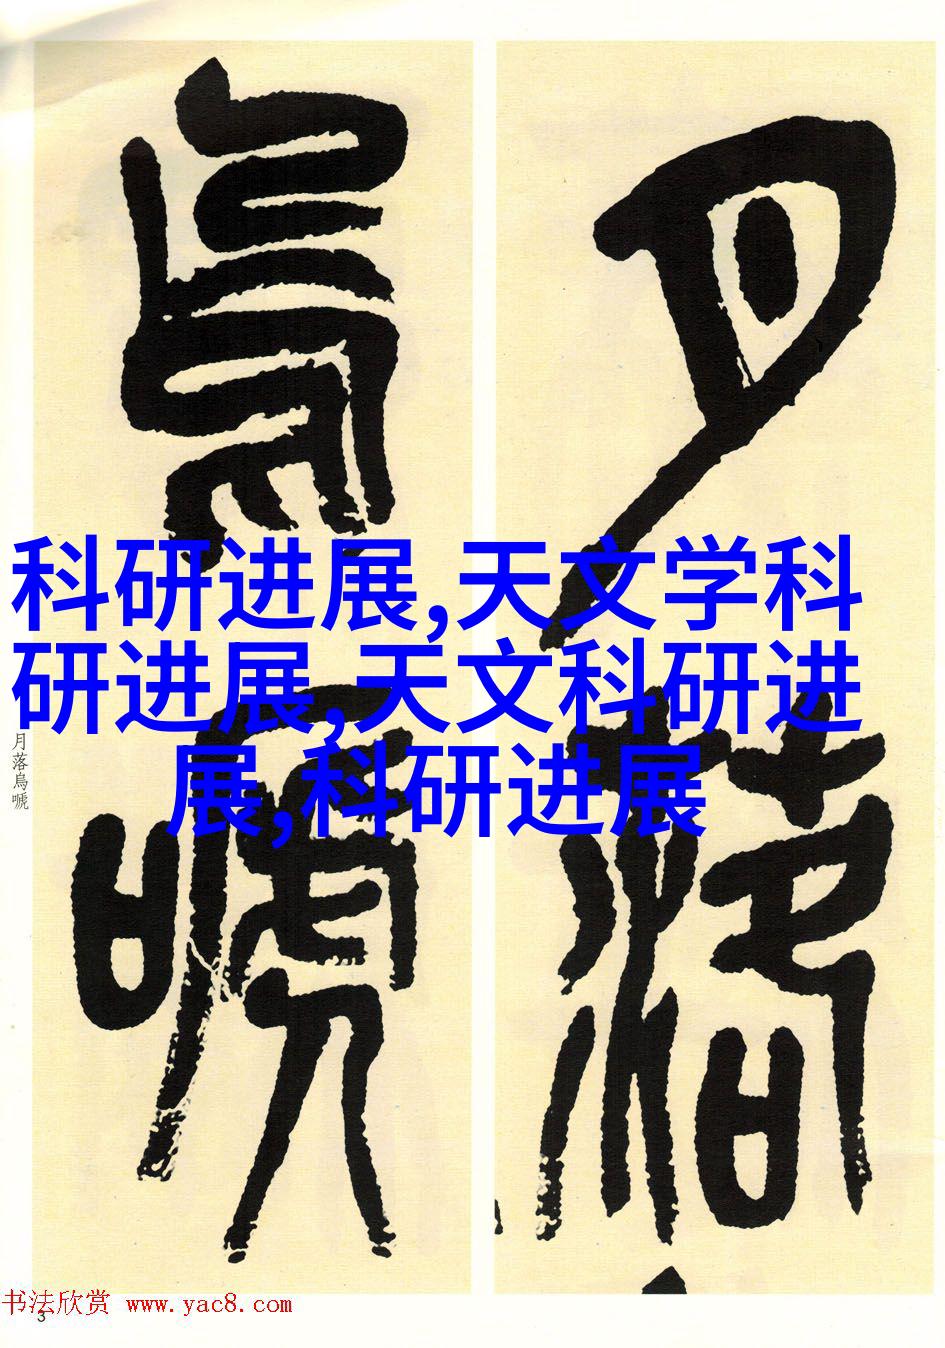 月落
烏嗁
科研进展,天文学科
研进展,天文科研进
展,科研进展
月落烏嗁
书法欣赏 www.yac8.com
3